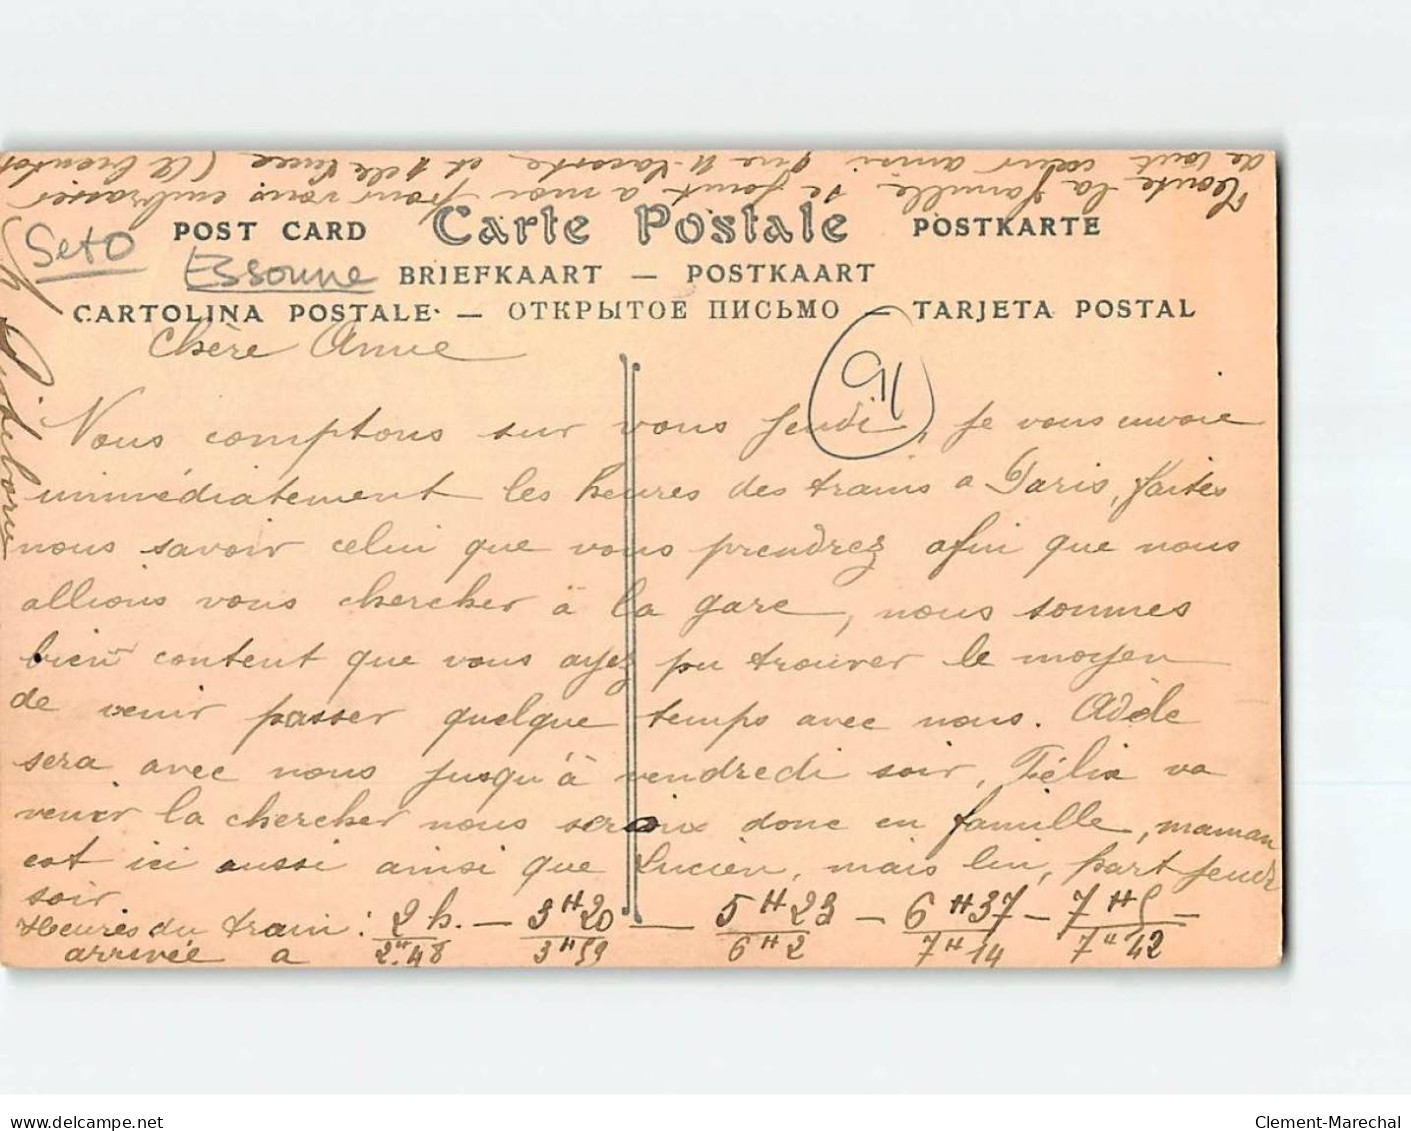 POST CARD Carte Postale POSTKARTE
Seto
Essonne
BRIEFKAART — POSTKAART
CARTOLINA POSTALE — ОТКРЫТОЕ ПИСЬМО — TARJETA POSTAL
91
Chère Amie
Nous comptons sur vous Jeudi, je vous envoie
immédiatement les heures des trains a Paris, faites
nous savoir celui que vous prendrez afin que nous
allions vous chercher à la gare, nous sommes
bien content que vous ayez pu trouver le moyen
de venir passer quelque temps avec nous. Adèle
sera avec nous jusqu'à vendredi soir, Félix va
venir la chercher nous serons donc en famille, maman
est ici aussi ainsi que Lucien, mais lui, part jeudi
soir
Heures du train : 2 h. — 3 H 20 — 5 H 23 — 6 H 37 — 7 H 5
arrivée a 2 H 48 3 H 59 6 H 2 7 H 14 7 H 42
Toute la famille se joint a moi pour vous embrasser
de tout cœur ainsi que et (A bientot